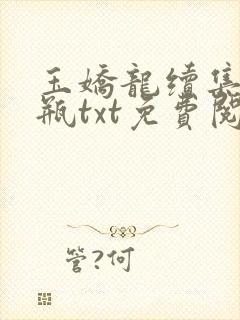 玉嬌龍續集
瓶txt免費閱
管?何